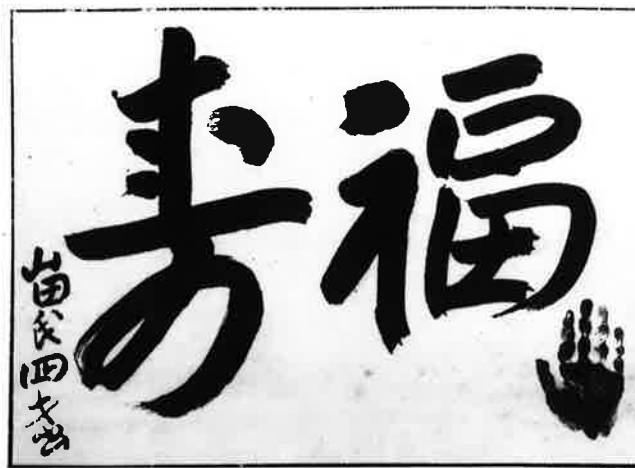 福寿
山田民四才書